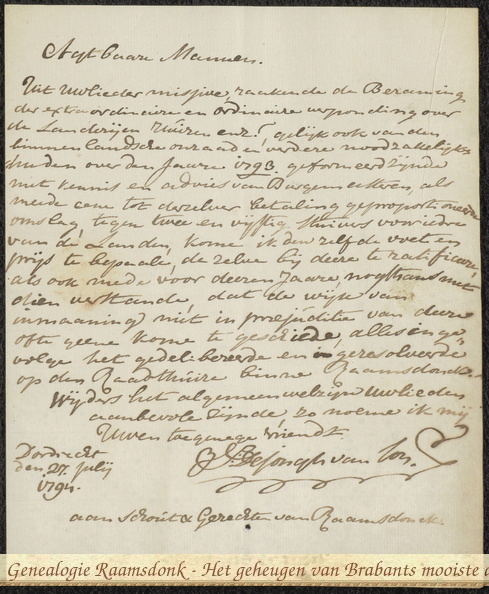 Agtbaare Mannen.
Uit Uwlieder missive raakende de Beraming
der extraordinaire en ordinaire verponding over
de Landerijen Huizen enz: gelijk ook van den
binnenlandsche onraad en verdere noodzakelijk
heeden over den Jaare 1793. geformeerd zijnde
met kennis en advies van Burgemeesteren, als
meede een tot derzelver betaling geproportioneerde
omslag, tegen twee en vijftig stuivers voor idre
van de Landen, kome ik den zelfde voet en
prijs te bepaale, de zelve bij deeze te ratificeere,
als ook mede voor deezen Jaare, nogthans met
dien verstande, dat de wijk van
inmaaning niet in prejuditie van deeze
ofte geene kome te geschiede, alles inge-
volge het gedelibereerde en geresolveerde
op den Raadthuize binne Raamsdonk.
Wijders het algemeen welzijn Uwlieden
aanbevole zijnde zo noeme ik mij
Uwen toegenege Vriendt
de Jongh van Son
Dordrecht
den 27. Julij
1794.
aan schout & Gerechte van Raamsdonck.
Genealogie Raamsdonk - Het geheugen van Brabants mooiste d